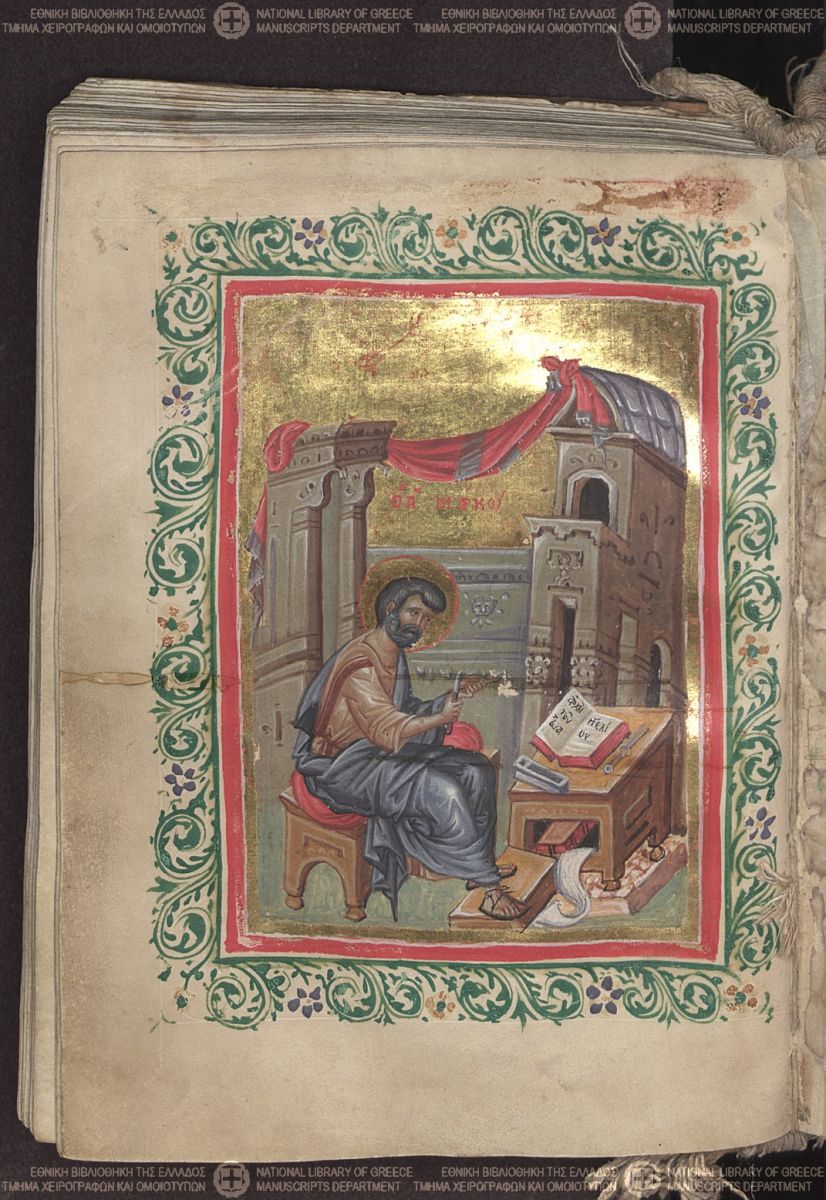 ΕΘΝΙΚΗ ΒΙΒΛΙΟΘΗΚΗ ΤΗΣ ΕΛΛΑΔΟΣ
ΤΜΗΜΑ ΧΕΙΡΟΓΡΑΦΩΝ ΚΑΙ ΟΜΟΙΟΤΥΠΩΝ
NATIONAL LIBRARY OF GREECE
MANUSCRIPTS DEPARTMENT
ΕΘΝΙΚΗ ΒΙΒΛΙΟΘΗΚΗ ΤΗΣ ΕΛΛΑΔΟΣ
ΤΜΗΜΑ ΧΕΙΡΟΓΡΑΦΩΝ ΚΑΙ ΟΜΟΙΟΤΥΠΩΝ
NATIONAL LIBRARY OF GREECE
MANUSCRIPTS DEPARTMENT
ΜΑΡΚΟΣ
ΕΘΝΙΚΗ ΒΙΒΛΙΟΘΗΚΗ ΤΗΣ ΕΛΛΑΔΟΣ
ΤΜΗΜΑ ΧΕΙΡΟΓΡΑΦΩΝ ΚΑΙ ΟΜΟΙΟΤΥΠΩΝ
NATIONAL LIBRARY OF GREECE
MANUSCRIPTS DEPARTMENT
ΕΘΝΙΚΗ ΒΙΒΛΙΟΘΗΚΗ ΤΗΣ ΕΛΛΑΔΟΣ
ΤΜΗΜΑ ΧΕΙΡΟΓΡΑΦΩΝ ΚΑΙ ΟΜΟΙΟΤΥΠΩΝ
NATIONAL LIBRARY OF GREECE
MANUSCRIPTS DEPARTMENT